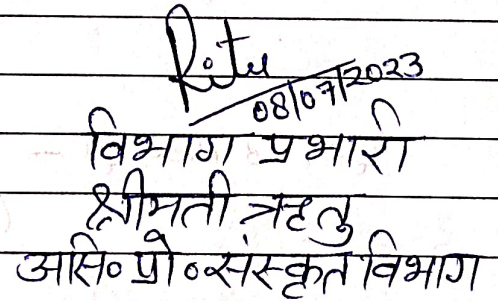 Ritu
08/07/2023
विभाग प्रभारी
श्रीमती ऋतु
असि० प्रो० संस्कृत विभाग